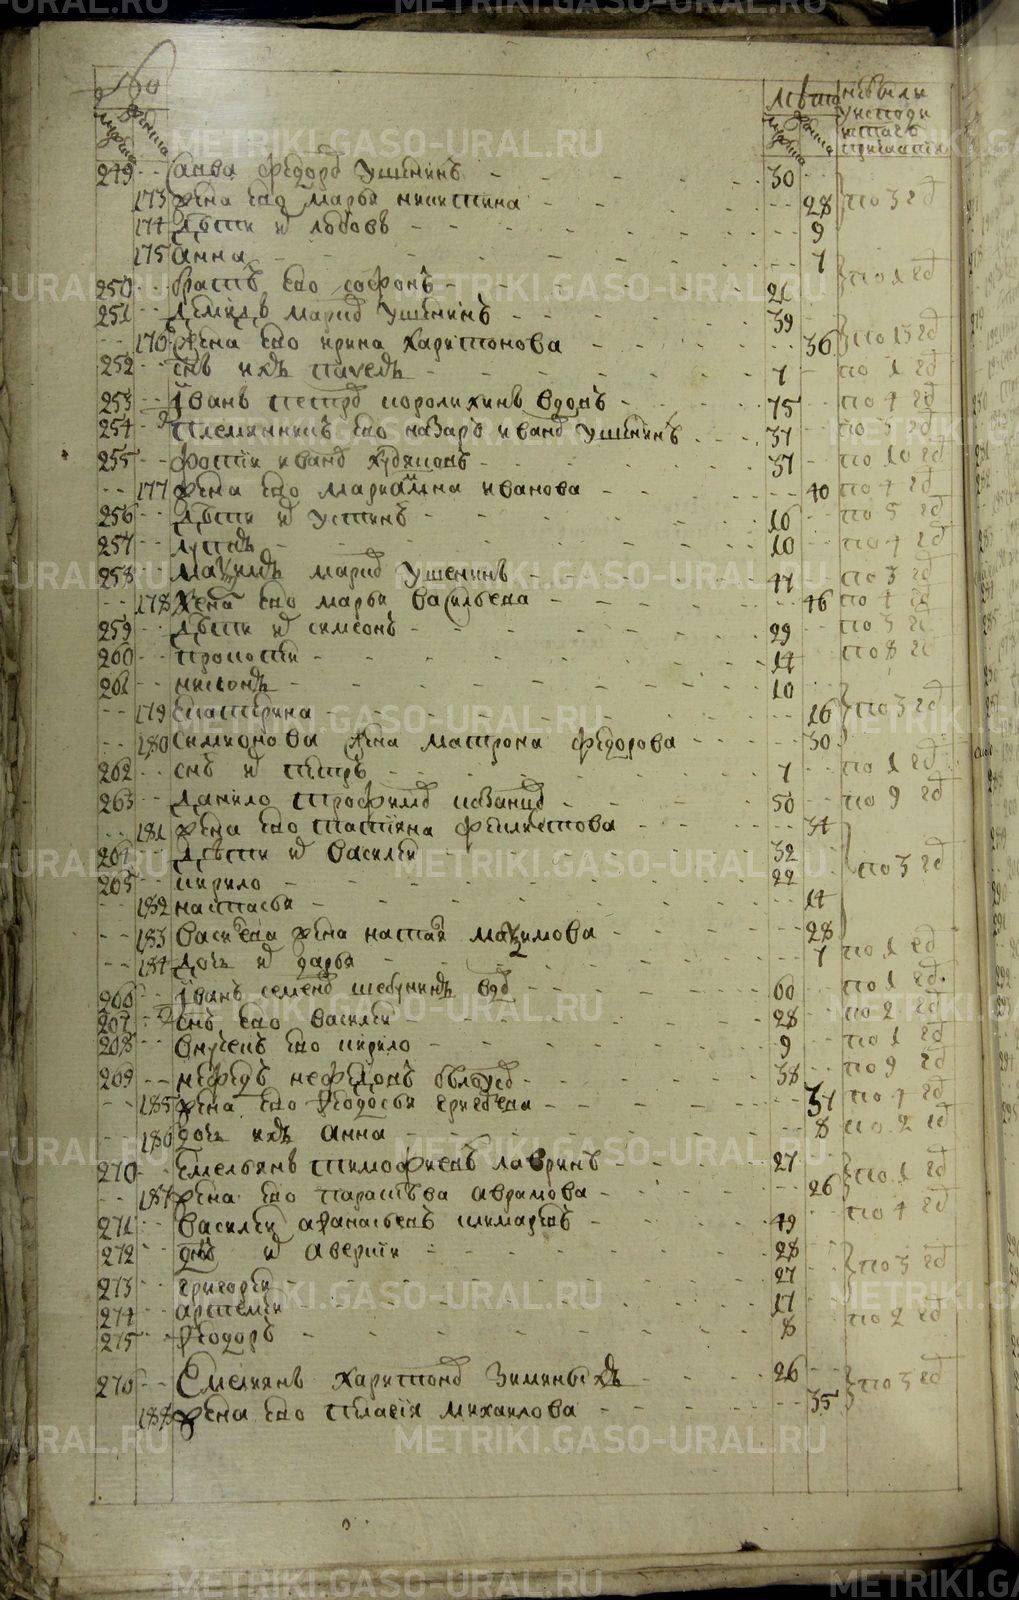 METRIKI.GASO-URAL.RU
лѣта небыли
у исповди
и т таен
причастия
мужеска женска мужеска женска
249 Савва Федоров Ушенинъ 30
173 жена ево марья никитина 28 по 3 год
174 дѣти их любовь 9
175 анна 7
250 братъ ево софонъ 21 по 1 год
251 демидъ марков Ушенинъ 39
176 жена ево ирина харитонова 36 по 13 год
252 снъ ихъ павелъ 7 по 1 год
253 Iванъ петров королихинъ вдовъ 75 по 4 год
254 племянникъ ево назаръ иванов Ушенинъ 37 по 3 год
255 фотiи иванов худяковъ 37 по 10 год
177 жена ево мариамна иванова 40 по 4 год
256 дѣти их устинъ 16 по 5 год
257 лупанъ 10 по 4 год
258 мадимъ марков Ушенинъ 47 по 3 год
178 жена ево марья васильева 46 по 4 год
259 дѣти их симеонъ 29 по 3 год
260 прокопiи 14 по 8 год
261 никонъ 10
179 екатерина 16 по 3 год
180 симионова жена матрона федорова 30
262 снъ их петръ 7 по 1 год
263 данило трофимов казанцов 50 по 9 год
181 жена ево татiяна феклистова 34
264 дѣти их василеи 32 по 3 год
265 кирило 22
182 настасья 14
183 васильева жена настасия мадимова 28
184 дочь их дарья 7 по 1 год
266 Iванъ семенов шебунинъ вдов 60 по 1 год
267 снъ ево василеи 28 по 2 год
268 внучекъ ево кирило 9 по 1 год
269 нефедъ нефедовъ бѣлоусов 38 по 9 год
185 жена ево феодосья григорева 37 по 4 год
186 дочь ихъ анна 8 по 2 год
270 Емельянъ тимофиевъ лавринъ 27 по 1 год
187 жена ево парасьва аврамова 26
271 василеи афанасьевъ 49 по 4 год
272 дѣти их аверкiи 28 по 3 год
273 григореи 27
274 артемеи 17 по 2 год
275 феодоръ 8
276 Емелиянъ харитонов зиминыхъ 26 по 3 год
188 жена ево пелагiя михаилова 35